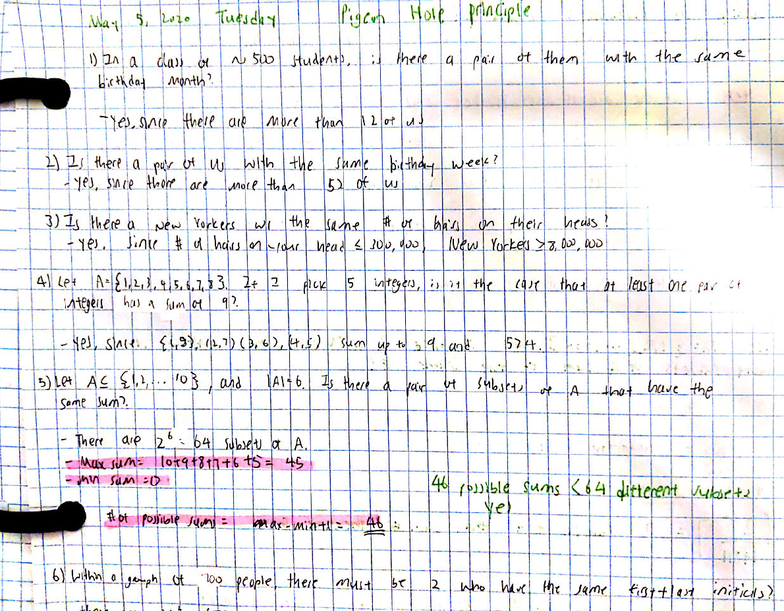 May 5, 2020 Tuesday Pigeon Hole principle
1) In a class of ~ 500 students, is there a pair of them with the same
birthday month?
- Yes, since there are more than 12 of us
2) Is there a pair of us with the same birthday week?
- yes, since there are more than 52 of us
3) Is there a New Yorkers w/ the same # of hairs on their heads?
- yes, since # of hairs on your head ≤ 200,000, New Yorkers > 8,000,000
4) Let A={1,2,3,4,5,6,7,8}. If I pick 5 integers, is it the case that at least one pair of
integers has a sum of 9?
- yes, since (1,8), (2,7) (3,6), (4,5) sum up to 9 and 5>4.
5) Let A ⊆ {1,2,... 10}, and |A|=6. Is there a pair of subsets of A that have the
same sum?
- There are 2^6 = 64 subsets of A.
- Max sum= 10+9+8+7+6+5= 45
- min sum =0
46 possible sums < 64 different subsets
yes
# of possible sums = max-min+1= 46
6) Within a group of 700 people, there must be 2 who have the same first + last initials?